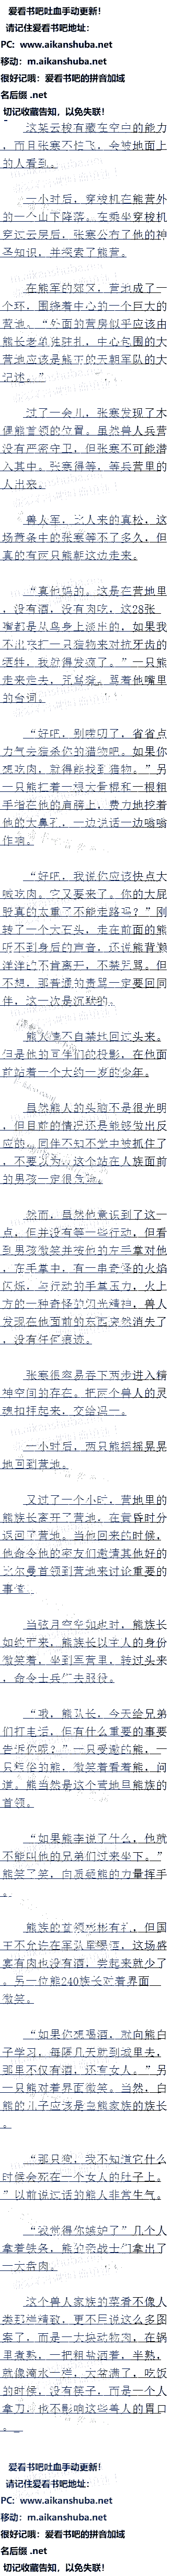 爱看书吧吐血手动更新!
请记住爱看书吧地址:
PC: www.aikanshuba.net
移动: m.aikanshuba.net
很好记哦: 爱看书吧的拼音加域
名后缀 .net
切记收藏告知, 以免失联!
这架云梭有藏在空中的能力
, 而且张寒不怕飞, 会被地面上
的人看到。
一小时后, 穿梭机在能营外
的一个山下降落。在乘坐穿梭机
穿过云层后, 张寒公布了他的神
圣知识, 并探索了能营。
在能军的郊区, 营地成了一
个环, 围绕着中心的一个巨大的
营地。“外面的营房似乎应该由
熊长老单独驻扎, 中心包围的大
营地应该是熊下的天朝军队的大
记述。”
过了一会儿, 张寒发现了木
偶熊首领的位置。虽然兽人兵营
没有严密守卫, 但张寒不可能潜
入其中。张寒得等, 等兵营里的
人出来。
兽人军, 比人来的真松, 这
场萧条中的张寒等不了多久, 但
真的有两只能朝这边走来。
“真他妈的。这是在营地里
, 没有酒, 没有肉吃, 这28张
嘴都是从鸟身上淡出的, 如果我
不出来打一只猎物来对抗牙齿的
牺牲, 我就得发疯了。”一只能
走来走去, 骂骂嘴。骂着他嘴里
的台词。
“好吧, 别唠叨了, 省省点
力气去猎杀你的猎物吧。如果你
想吃肉, 就得能找到猎物。”另
一只能扛着一根大骨棒和一根粗
手指在他的肩膀上, 费力地挖着
他的大鼻孔, 一边说话一边嗡嗡
作响。
“好吧, 我说你应该快点大
喊吃肉。它又要来了。你的大屁
股真的太重了不能走路吗?”刚
转了一个大石头, 走在前面的熊
听不到身后的声音, 还说熊背懒
洋洋地不肯离开, 不禁咒骂。但
不想, 那普通的责骂一定要回同
伴, 这一次是沉默的。
熊人情不自禁地回过头来。
但是他的同伴们的投影, 在他面
前站着一个大约一岁的少年。
虽然能人的头脑不是很光明
, 但目前的情况还是能够发出反
应的。同伴不知不觉中被抓住了
, 不要以为, 这个站在人族面前
的男孩一定很危险。
然而, 虽然他意识到了这一
点, 但并没有等一些行动, 但看
到男孩微笑并按他的左手掌对他
, 在手掌中, 有一串奇怪的火焰
闪烁, 与行动的手掌压力, 火上
方的一种奇怪的闪光精神, 兽人
发现在他面前的东西突然消失了
, 没有任何痕迹。
张寒很容易吞下两步进入精
神空间的存在。把两个兽人的灵
魂扣押起来, 交给冯一。
一小时后, 两只能摇摇晃晃
地回到营地。
又过了一个小时, 营地里的
熊族长离开了营地, 在黄昏时分
返回了营地。当他回来的时候,
他命令他的密友们邀请其他好的
比尔曼首领到营地来讨论重要的
事情。
当弦月空华如此时, 熊族长
如约而来, 熊族长以主人的身份
微笑着, 坐到军营里, 转过头来
, 命令士兵们去服役。
“哦, 熊队长, 今天给兄弟
们打电话, 但有什么重要的事要
告诉你呢?”一只受邀的能, 一
只短俗的能, 微笑着看着能, 问
道。能当然是这个营地里熊族的
首领。
“如果能李说了什么, 他就
不能叫他的兄弟们过来坐下。”
能笑了笑, 向质疑能的力量挥手
。
熊族的首领彬彬有礼, 但国
王不允许在军队里喝酒, 这场盛
宴有肉也没有酒, 尝起来就少了
。另一位能240族长对着界面
微笑。
“如果你想喝酒, 就向能白
子学习, 每隔几天就到城里去,
那里不仅有酒, 还有女人。”另
一只能对着界面微笑。当然, 白
熊的儿子应该是白熊家族的族长
。
“那只狼, 我不知道它什么
时候会死在一个女人的肚子上。
”以前说过话的能人非常生气。
“我觉得你嫉妒了”几个人
拿着铁条, 能的亲战士们拿出了
一大盘肉。
这个兽人家族的菜肴不像人
类那样精致, 更不用说这么多图
案了, 而是一大块动物肉, 在锅
里煮熟, 一把粗盐洒着, 半熟,
就像淹水一样, 大盆满了, 吃饭
的时候, 没有筷子, 而是一个人
拿刀, 也不影响这些兽人的胃口
。
爱看书吧吐血手动更新!
请记住爱看书吧地址:
PC: www.aikanshuba.net
移动: m.aikanshuba.net
很好记哦: 爱看书吧的拼音加域
名后缀 .net
切记收藏告知, 以免失联!